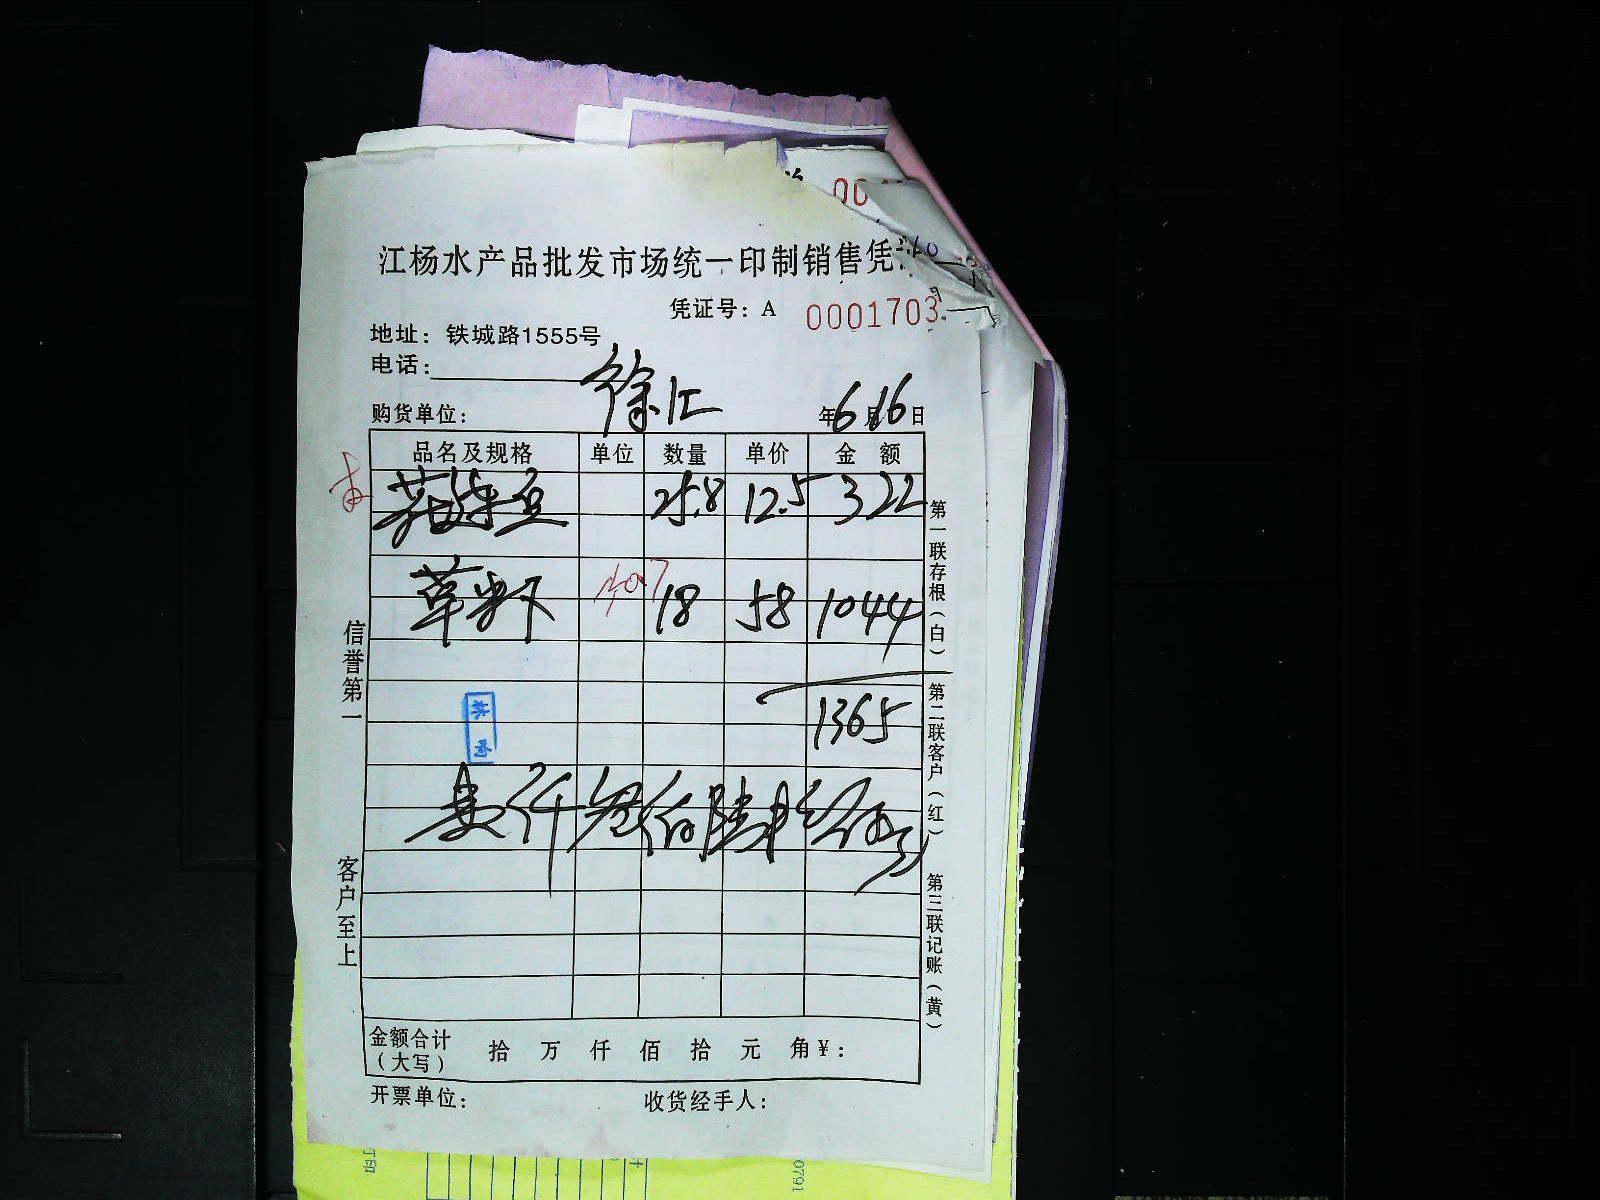 00
江杨水产品批发市场统一印制销售凭
凭证号：A 0001703
地址：铁城路1555号
电话：
购货单位： 徐汇 年6月16日
品名及规格 单位 数量 单价 金 额
25.8 12.5 322
草虾 40.7 18 58 1044
1365
壹仟叁佰陆拾伍元
金额合计（大写） 拾 万 仟 佰 拾 元 角￥：
开票单位： 收货经手人：
信誉第一
客户至上
第一联存根（白）
第二联客户（红）
第三联记账（黄）
0791